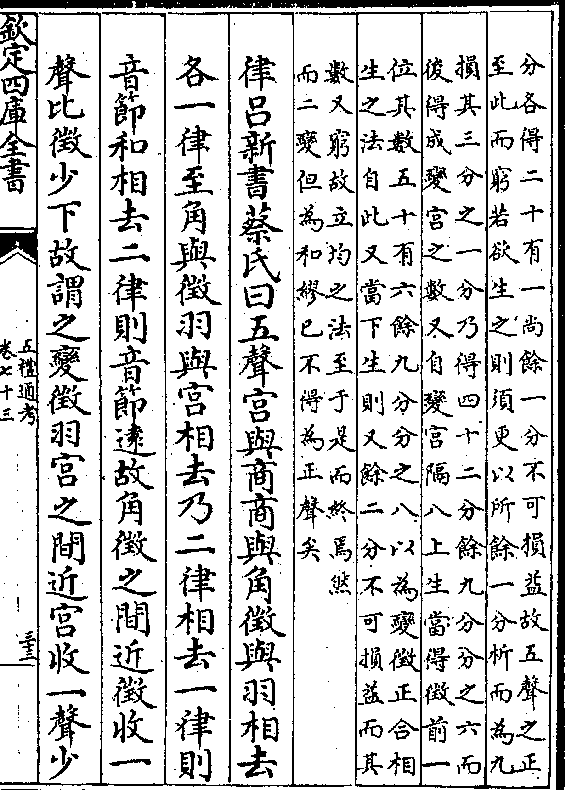 分各得二十有一尚餘一分不可損益故五聲之正
至此而窮若欲生之則須更以所餘一分析而為九
損其三分之一分乃得四十二分餘九分分之六而
後得成變宮之數又自變宮隔八上生當得徵前一
位其數五十有六餘九分分之八以為變徵正合相
生之法自此又當下生則又餘二分不可損益而其
數又窮故立均之法至于是而終焉然
而二變但為和繆已不得為正聲矣
律呂新書蔡氏曰五聲宮與商商與角徵與羽相去
各一律至角與徵羽與宮相去乃二律相去一律則
音節和相去二律則音節逺故角徵之間近徵收一
聲比徵少下故謂之變徵羽宮之間近宮收一聲少
欽定四庫全書
五禮通考
卷七十三